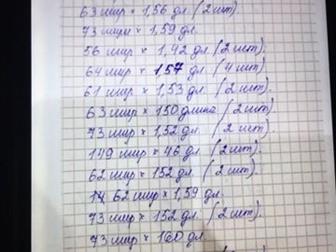 63 шир × 1,56 дл. (2 шт)
73 шир × 1,59 дл.
56 шир × 1,42 дл (2 шт).
64 шир × 1,57 дл (4 шт)
61 шир × 1,53 дл (2 шт).
63 шир × 150 длина (2 шт)
73 шир × 1,52 дл. (2 шт)
149 шир × 46 дл (2 шт)
62 шир × 152 дл. (2 шт)
62 шир × 1,59 дл.
73 шир × 152 дл. (2 шт).
73 шир × 160 дл.